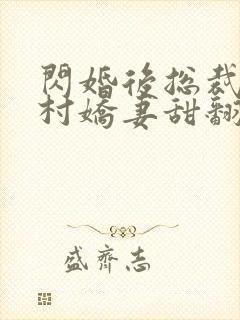 閃婚後総裁
村嬌妻甜翻
盛齊志